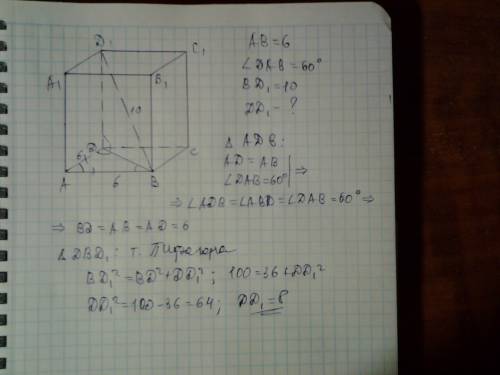 D₁
C₁
A₁
B₁
10
D
C
A
6
B
AB = 6
∠DAB = 60°
BD₁ = 10
DD₁ - ?
△ ADB:
AD = AB
∠DAB = 60° | ⇒
⇒ ∠ADB = ∠ABD = ∠DAB = 60° ⇒
⇒ BD = AB = AD = 6
△ DBD₁: т. Пифагора
BD₁² = BD² + DD₁²; 100 = 36 + DD₁²
DD₁² = 100 - 36 = 64; DD₁ = 8